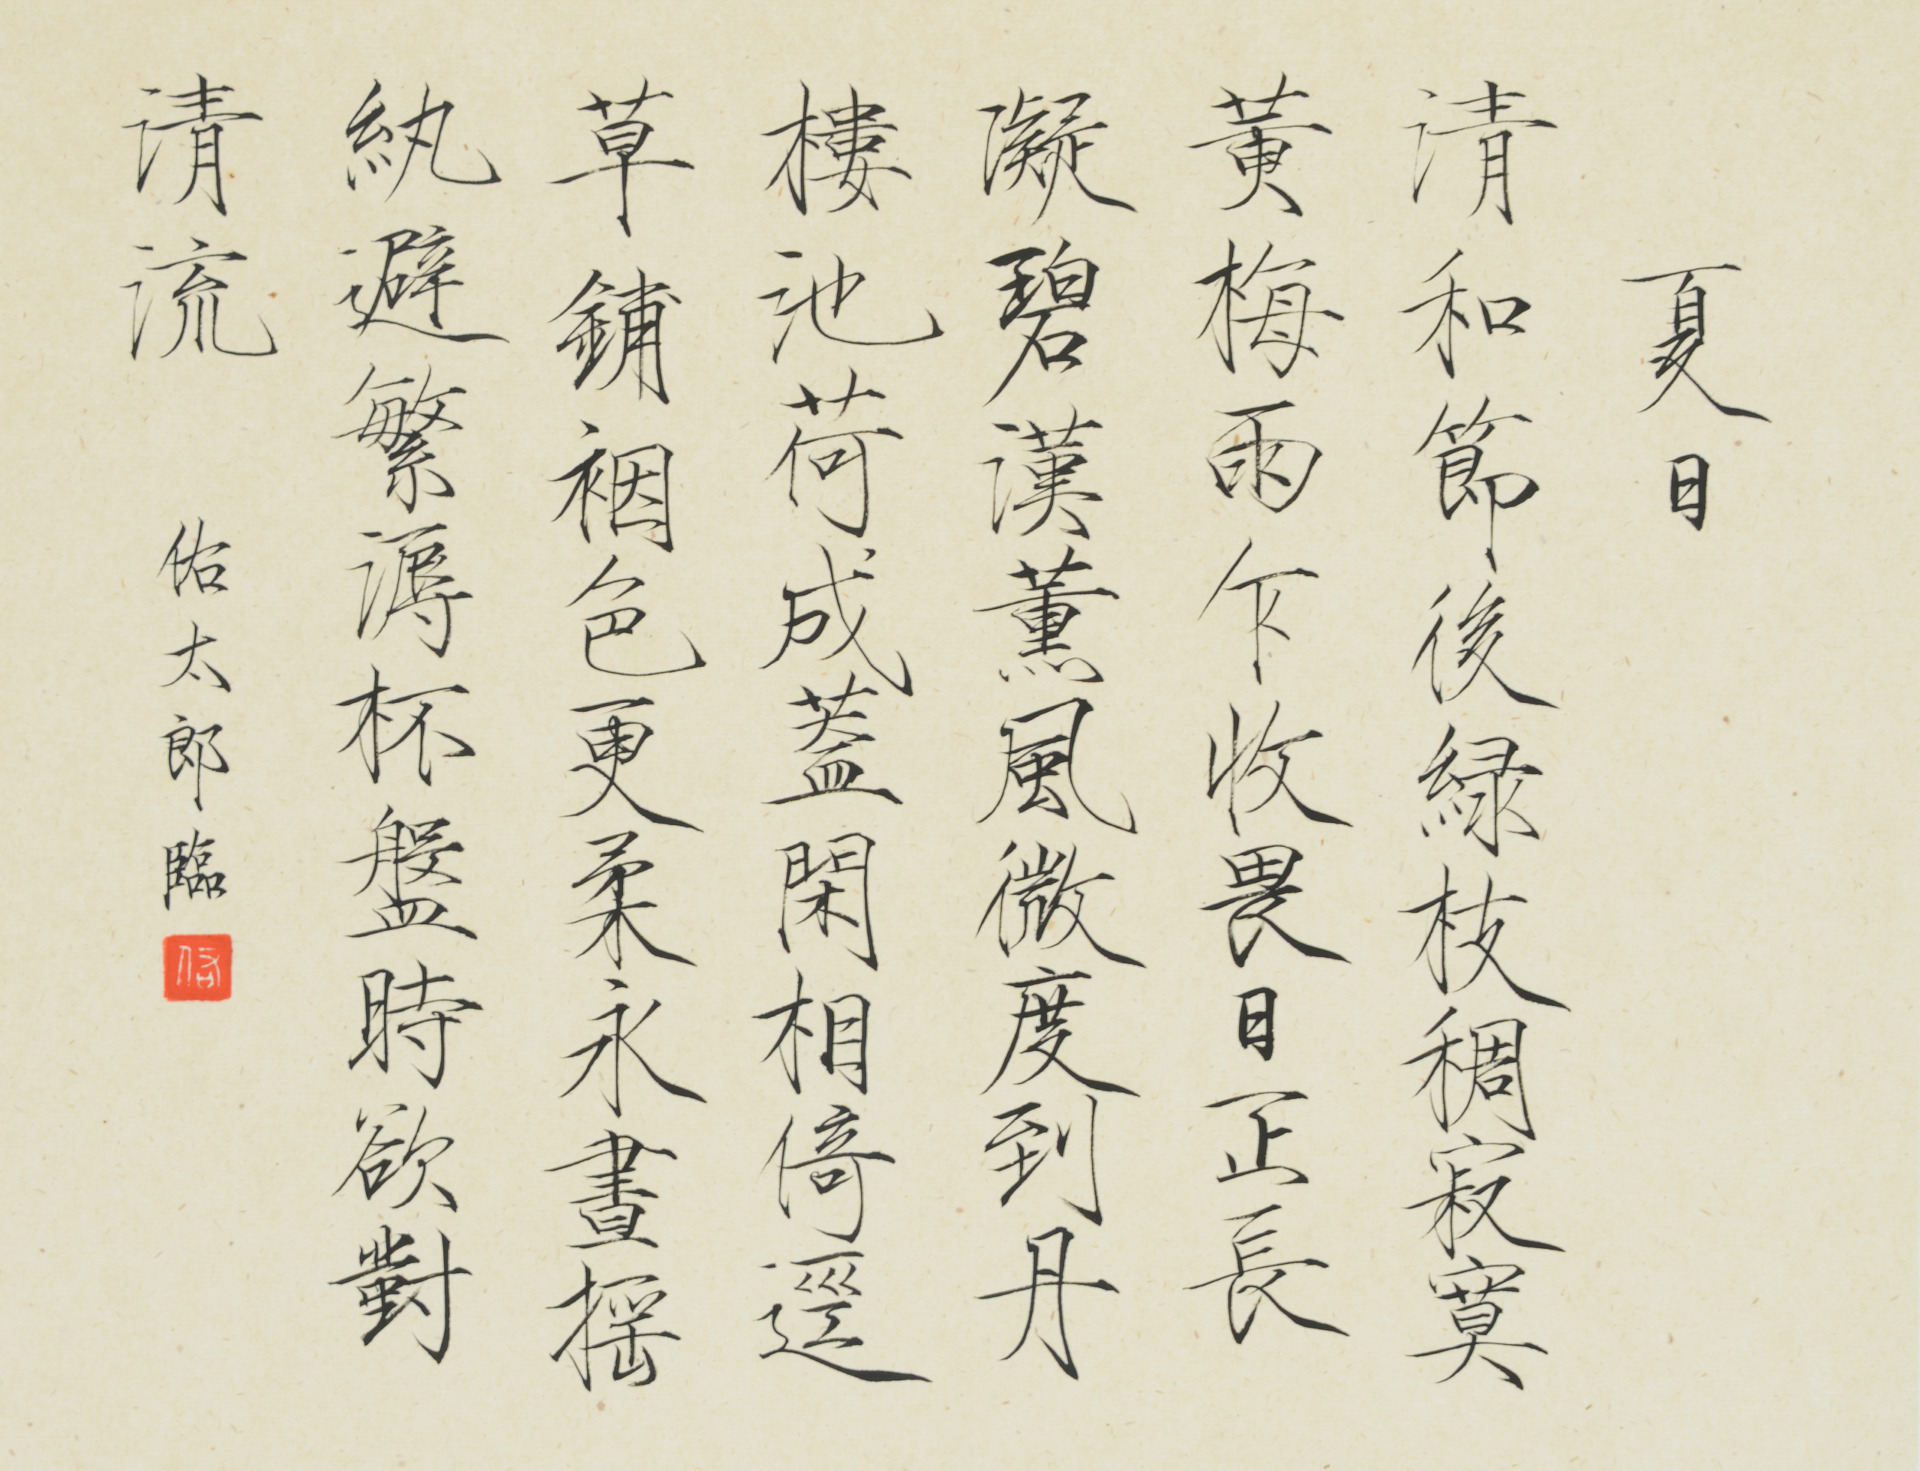 夏日
清和節後緑枝稠寂寞
黃梅雨乍收畏日正長
凝碧漢薰風微度到丹
樓池荷成蓋閑相倚逕
草鋪裀色更柔永晝搖
紈避繁溽杯盤時欲對
清流
佑太郎臨
佑